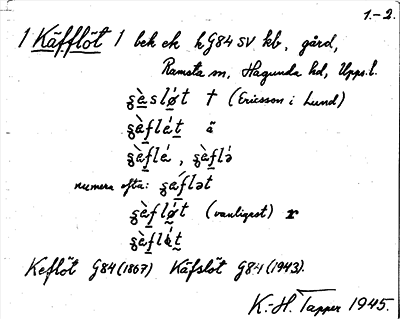 1.-2.
1 Käfflöt 1 bek ek h G84 SV kb, gård,
Ramsta sn, Hagunda hd, Upps. l.
ʂæ̀slǿt † (Ericsson i Lund)
ʂæ̀flét ä
ʂæ̀flé, ʂæ̀flə́
numera ofta: ʂǽflət
ʂæ̀flǿt (vanligast) r
ʂæ̀flét
Keflöt G84 (1867) Käfslöt G84 (1943).
K.-H. Tapper 1945.